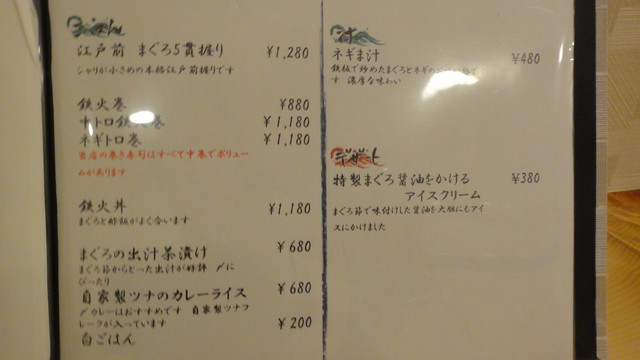 ごはん
江戸前 まぐろ5貫握り ¥1,280
シャリが小さめの本格江戸前握りです
鉄火巻 ¥880
中トロ鉄火巻 ¥1,180
ネギトロ巻 ¥1,180
当店の巻き寿司はすべて中巻でボリュー
ムがあります
鉄火丼 ¥1,180
まぐろと酢飯がよく合います
まぐろの出汁茶漬け ¥680
まぐろ節からとった出汁が好評 〆に
ぴったり
自家製ツナのカレーライス ¥680
〆カレーはおすすめです 自家製ツナフ
レークが入っています
白ごはん ¥200
汁
ネギま汁 ¥480
鉄板で炒めたまぐろとネギの
す 濃厚な味わい
デザート
特製まぐろ醤油をかける ¥380
アイスクリーム
まぐろ節で味付けした醤油を大胆にもアイ
スにかけました